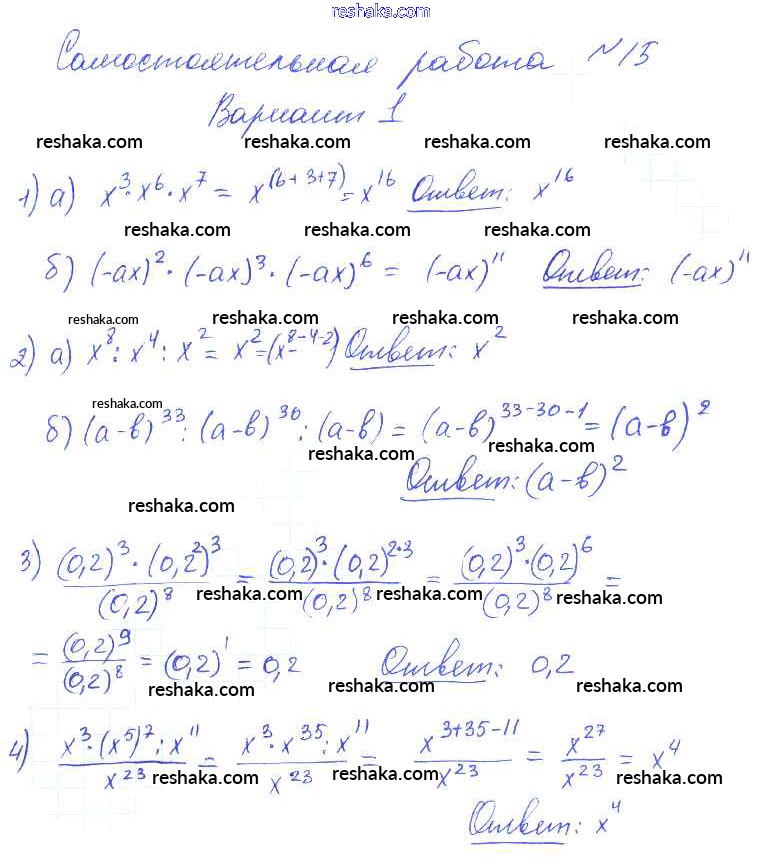 reshaka.com
Самостоятельная работа №15
Вариант 1
reshaka.com reshaka.com reshaka.com reshaka.com
1) а) x³·x⁶·x⁷ = x⁽⁶⁺³⁺⁷⁾ = x¹⁶ Ответ: x¹⁶
reshaka.com reshaka.com reshaka.com
б) (-ax)²·(-ax)³·(-ax)⁶ = (-ax)¹¹ Ответ: (-ax)¹¹
reshaka.com reshaka.com reshaka.com reshaka.com
2) а) x⁸ : x⁴ : x² = x² = (x⁸⁻⁴⁻²) Ответ: x²
reshaka.com
б) (a-b)³³ : (a-b)³⁰ : (a-b) = (a-b)³³⁻³⁰⁻¹ = (a-b)²
reshaka.com reshaka.com reshaka.com
Ответ: (a-b)²
reshaka.com
3) (0,2)³·(0,2²)³/(0,2)⁸ = (0,2)³·(0,2)²·³/(0,2)⁸ = (0,2)³·(0,2)⁶/(0,2)⁸ =
reshaka.com reshaka.com reshaka.com
= (0,2)⁹/(0,2)⁸ = (0,2)¹ = 0,2 Ответ: 0,2
reshaka.com reshaka.com reshaka.com
4) x³·(x⁵)⁷ : x¹¹/x²³ = x³·x³⁵ : x¹¹/x²³ = x³⁺³⁵⁻¹¹/x²³ = x²⁷/x²³ = x⁴
reshaka.com reshaka.com reshaka.com reshaka.com
Ответ: x⁴